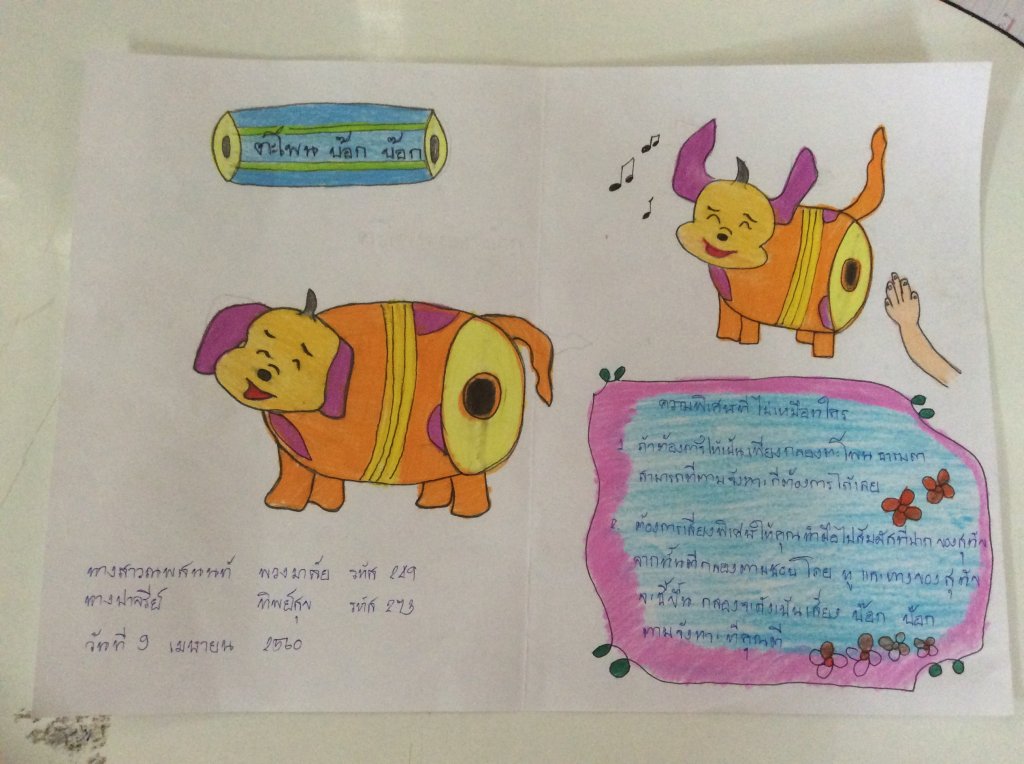 ตะโพน บ๊อก บ๊อก
นางสาวณพสนนท์ พวงมาลัย รหัส 229
นางปาลรีย์ ทิพย์สุข รหัส 273
วันที่ 9 เมษายน 2560
ความพิเศษที่ไม่เหมือนใคร
1. ถ้าต้องการให้เป็นเพียงกลองตะโพน ธรรมดา
สามารถตีตามจังหวะที่ต้องการได้เลย
2. ต้องการเสียงพิเศษให้คุณนำมือไปสัมผัสที่ปากของสุนัข
จากนั้นตีกลองตามชอบโดย หู และหางของสุนัข
จะชี้ขึ้น กลองจะดังเป็นเสียง บ๊อก บ๊อก
ตามจังหวะที่คุณตี